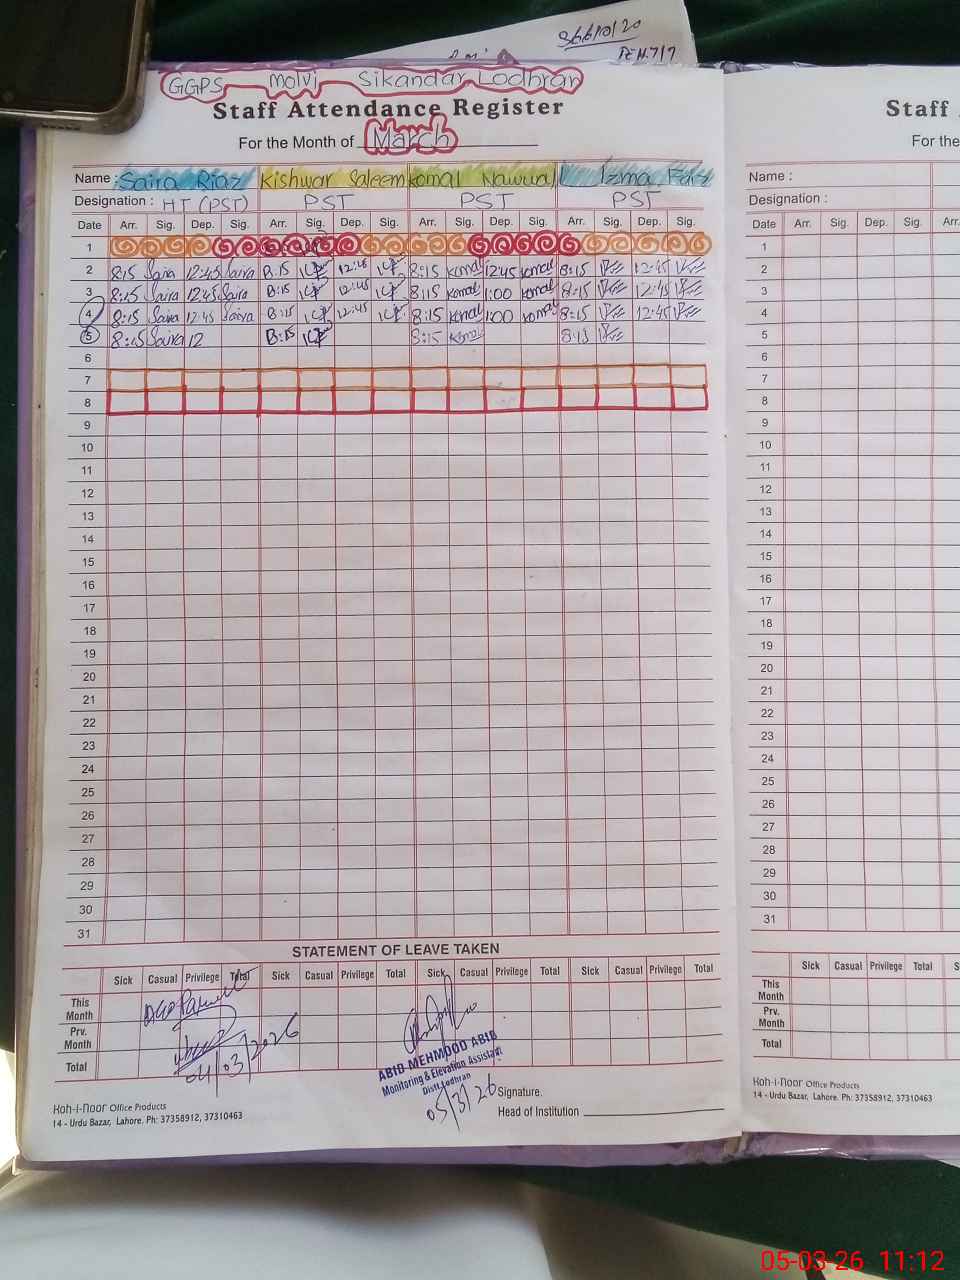 36610/20
GGPS Molvi Sikandar Lodhran
Staff Attendance Register
For the Month of March
Name : Saira Riaz Kishwar Saleem Komal Nawwal Izma Faiz
Designation : HT (PST) PST PST PST
Date Arr. Sig. Dep. Sig. Arr. Sig. Dep. Sig. Arr. Sig. Dep. Sig. Arr. Sig. Dep. Sig.
1
2 8:15 Saira 12:45 Saira 8:15 12:45 8:15 Komal 12:45 Komal 8:15 12:45
3 8:15 Saira 12:45 Saira 8:15 12:45 8:15 Komal 1:00 Komal 8:15 12:45
4 8:15 Saira 12:45 Saira 8:15 12:45 8:15 Komal 1:00 Komal 8:15 12:45
5 8:15 Saira 12 8:15 8:15 Komal 8:15
6
7
8
9
10
11
12
13
14
15
16
17
18
19
20
21
22
23
24
25
26
27
28
29
30
31
STATEMENT OF LEAVE TAKEN
Sick Casual Privilege Total Sick Casual Privilege Total Sick Casual Privilege Total Sick Casual Privilege Total
This Month
Prv. Month
Total
04/03/2026
ABID MEHMOOD ABID
Monitoring & Elevation Assistant
Distt Lodhran
05/3/26
Signature.
Head of Institution
Koh-i-noor Office Products
14 - Urdu Bazar, Lahore. Ph: 37358912, 37310463
Staff
For the
Name :
Designation :
Date Arr. Sig. Dep. Sig. Arr.
1
2
3
4
5
6
7
8
9
10
11
12
13
14
15
16
17
18
19
20
21
22
23
24
25
26
27
28
29
30
31
Sick Casual Privilege Total
This Month
Prv. Month
Total
Koh-i-noor Office Products
14 - Urdu Bazar, Lahore. Ph: 37358912, 37310463
05-03-26 11:12